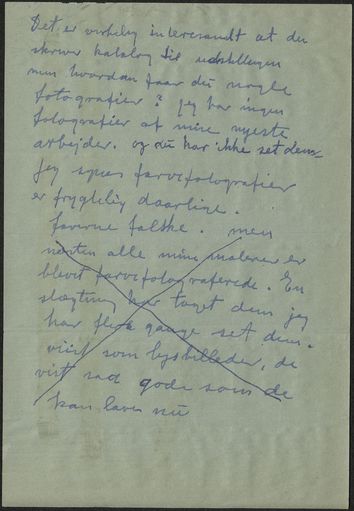 Det er virkelig interessant at du
skriver katalog til udstillingen
men hvordan faar du nogle
fotografier? jeg har ingen
fotografier af mine nyeste
arbejder. og du har ikke set dem
jeg synes farvefotografier
er frygtelig daarlige.
farverne falske. men
næsten alle mine malerier er
blevet farvefotograferede. En
slægtning har taget dem jeg
har flere gange set dem.
viist som lysbilleder, de
vist saa gode som de
kan laves nu